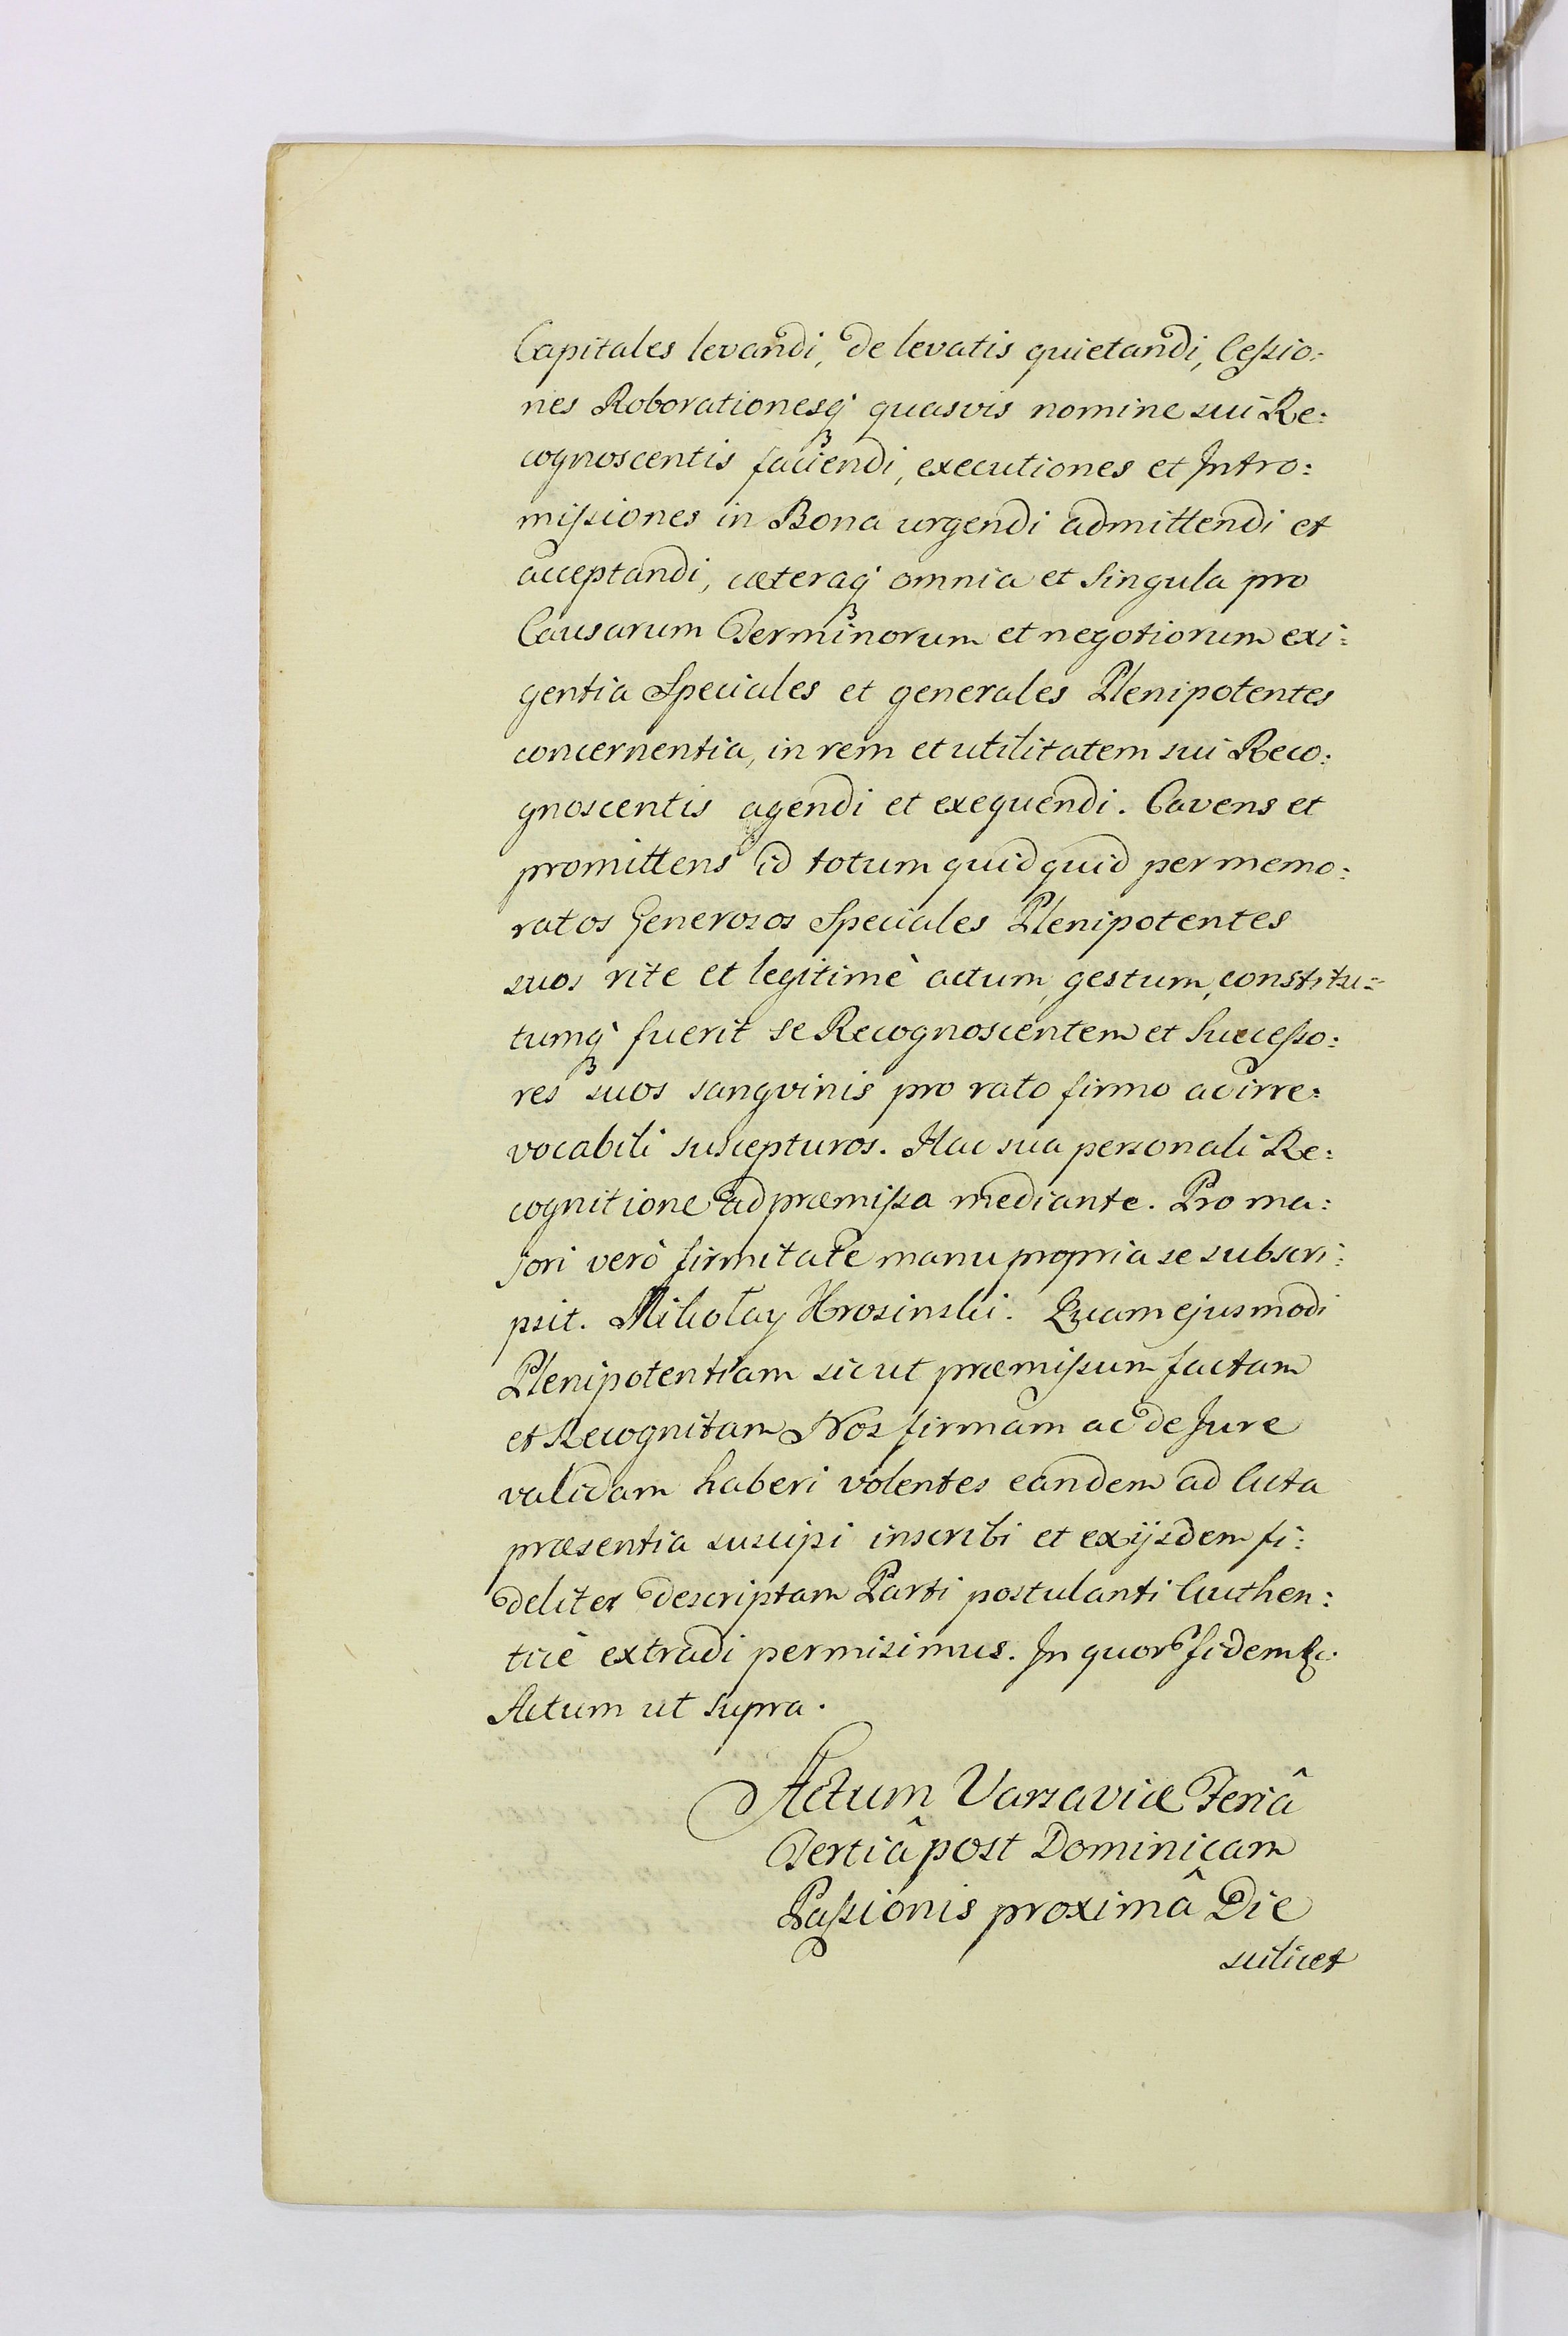 Capitales levandi, de levatis quietandi, Ceſsio:
nes Roborationesq́ quasvis nomine sui Re:
cognoscentis faciendi, executiones et Intro:
miſsiones in Bona urgendi admittendi et
acceptandi, cæteraq́ omnia et Singula pro
Causarum Terminorum et negotiorum exi:
gentia Speciales et generales Plenipotentes
concernentia, in rem et utilitatem sui Reco:
gnoscentis agendi et exequendi. Cavens et
promittens id totum quidquid per memo:
ratos Generosos Speciales Plenipotentes
suos rite et legitimè actum, gestum, constitu:
tumq́ fuerit se Recognoscentem et Succeſso:
res suos sangvinis pro rato firmo ac irre:
vocabili suscepturos. Hac sua personali Re:
cognitione ad præmiſsa mediante. Pro ma:
jori verò firmitate manu propria se subscri:
psit. Mikołay Krosinski. Quam ejusmodi
Plenipotentiam sic ut præmiſsum factam
et Recognitam Nos firmam ac de Jure
validam haberi volentes eandem ad Acta
præsentia suscipi inscribi et ex ijsdem fi:
deliter descriptam Parti postulanti Authen:
ticè extradi permisimus. In quor fidem &c.
Actum ut supra.
Actum Varsaviæ Feriâ
Tertiâ post Dominicam
Paſsionis proximâ Die
scilicet